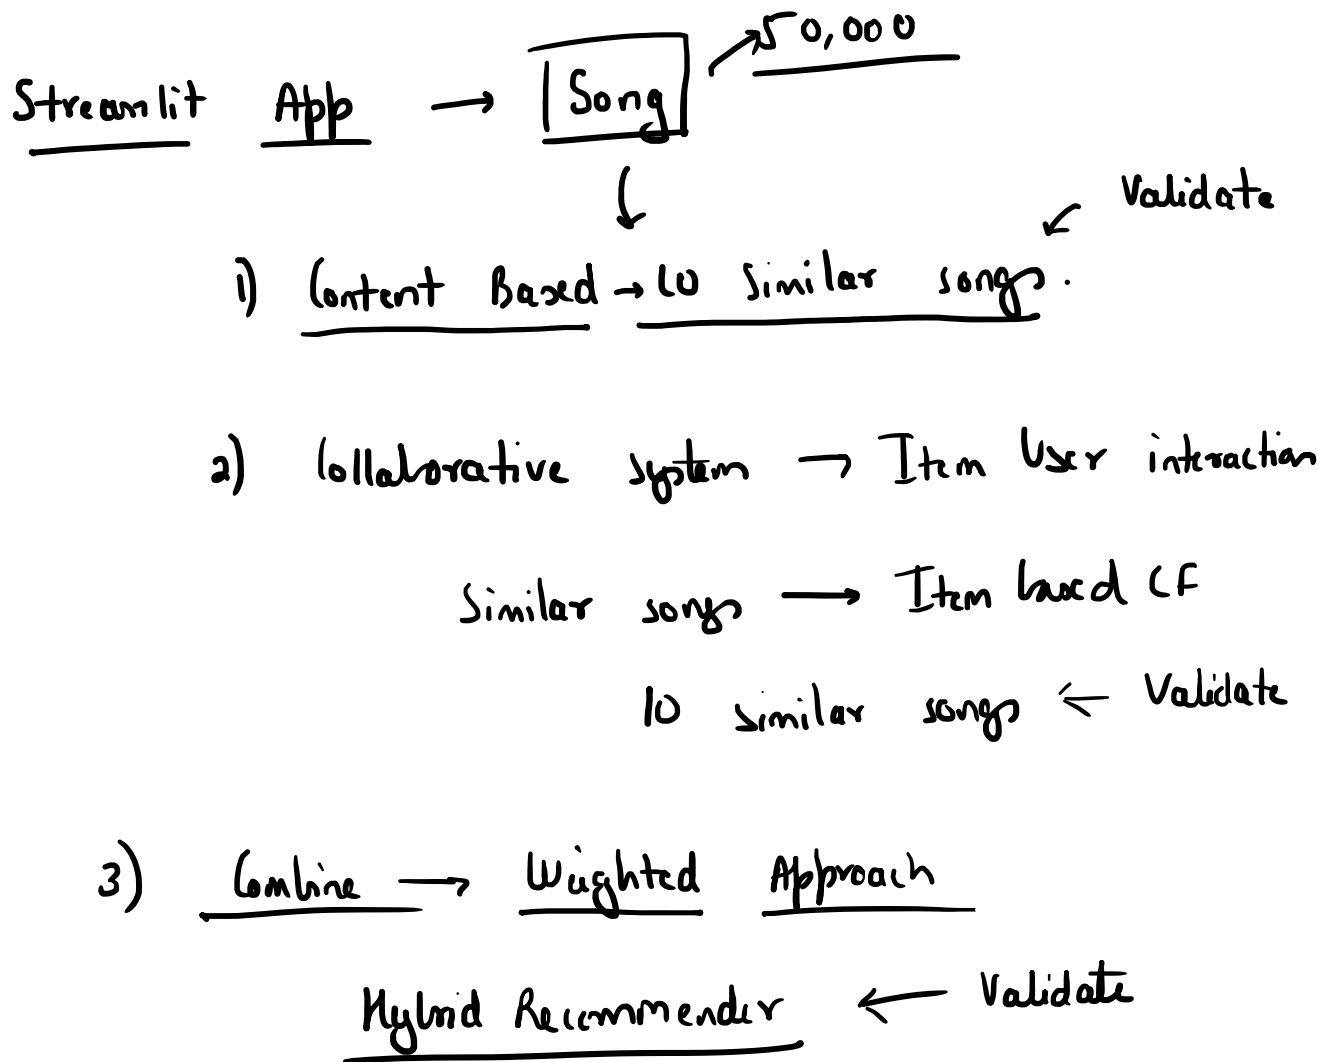 50,000
Streamlit App → Song
Validate
1) Content Based → 10 similar songs.
2) Collaborative system → Item User interaction
Similar songs → Item based CF
10 similar songs ← Validate
3) Combine → Weighted Approach
Hybrid Recommender ← Validate